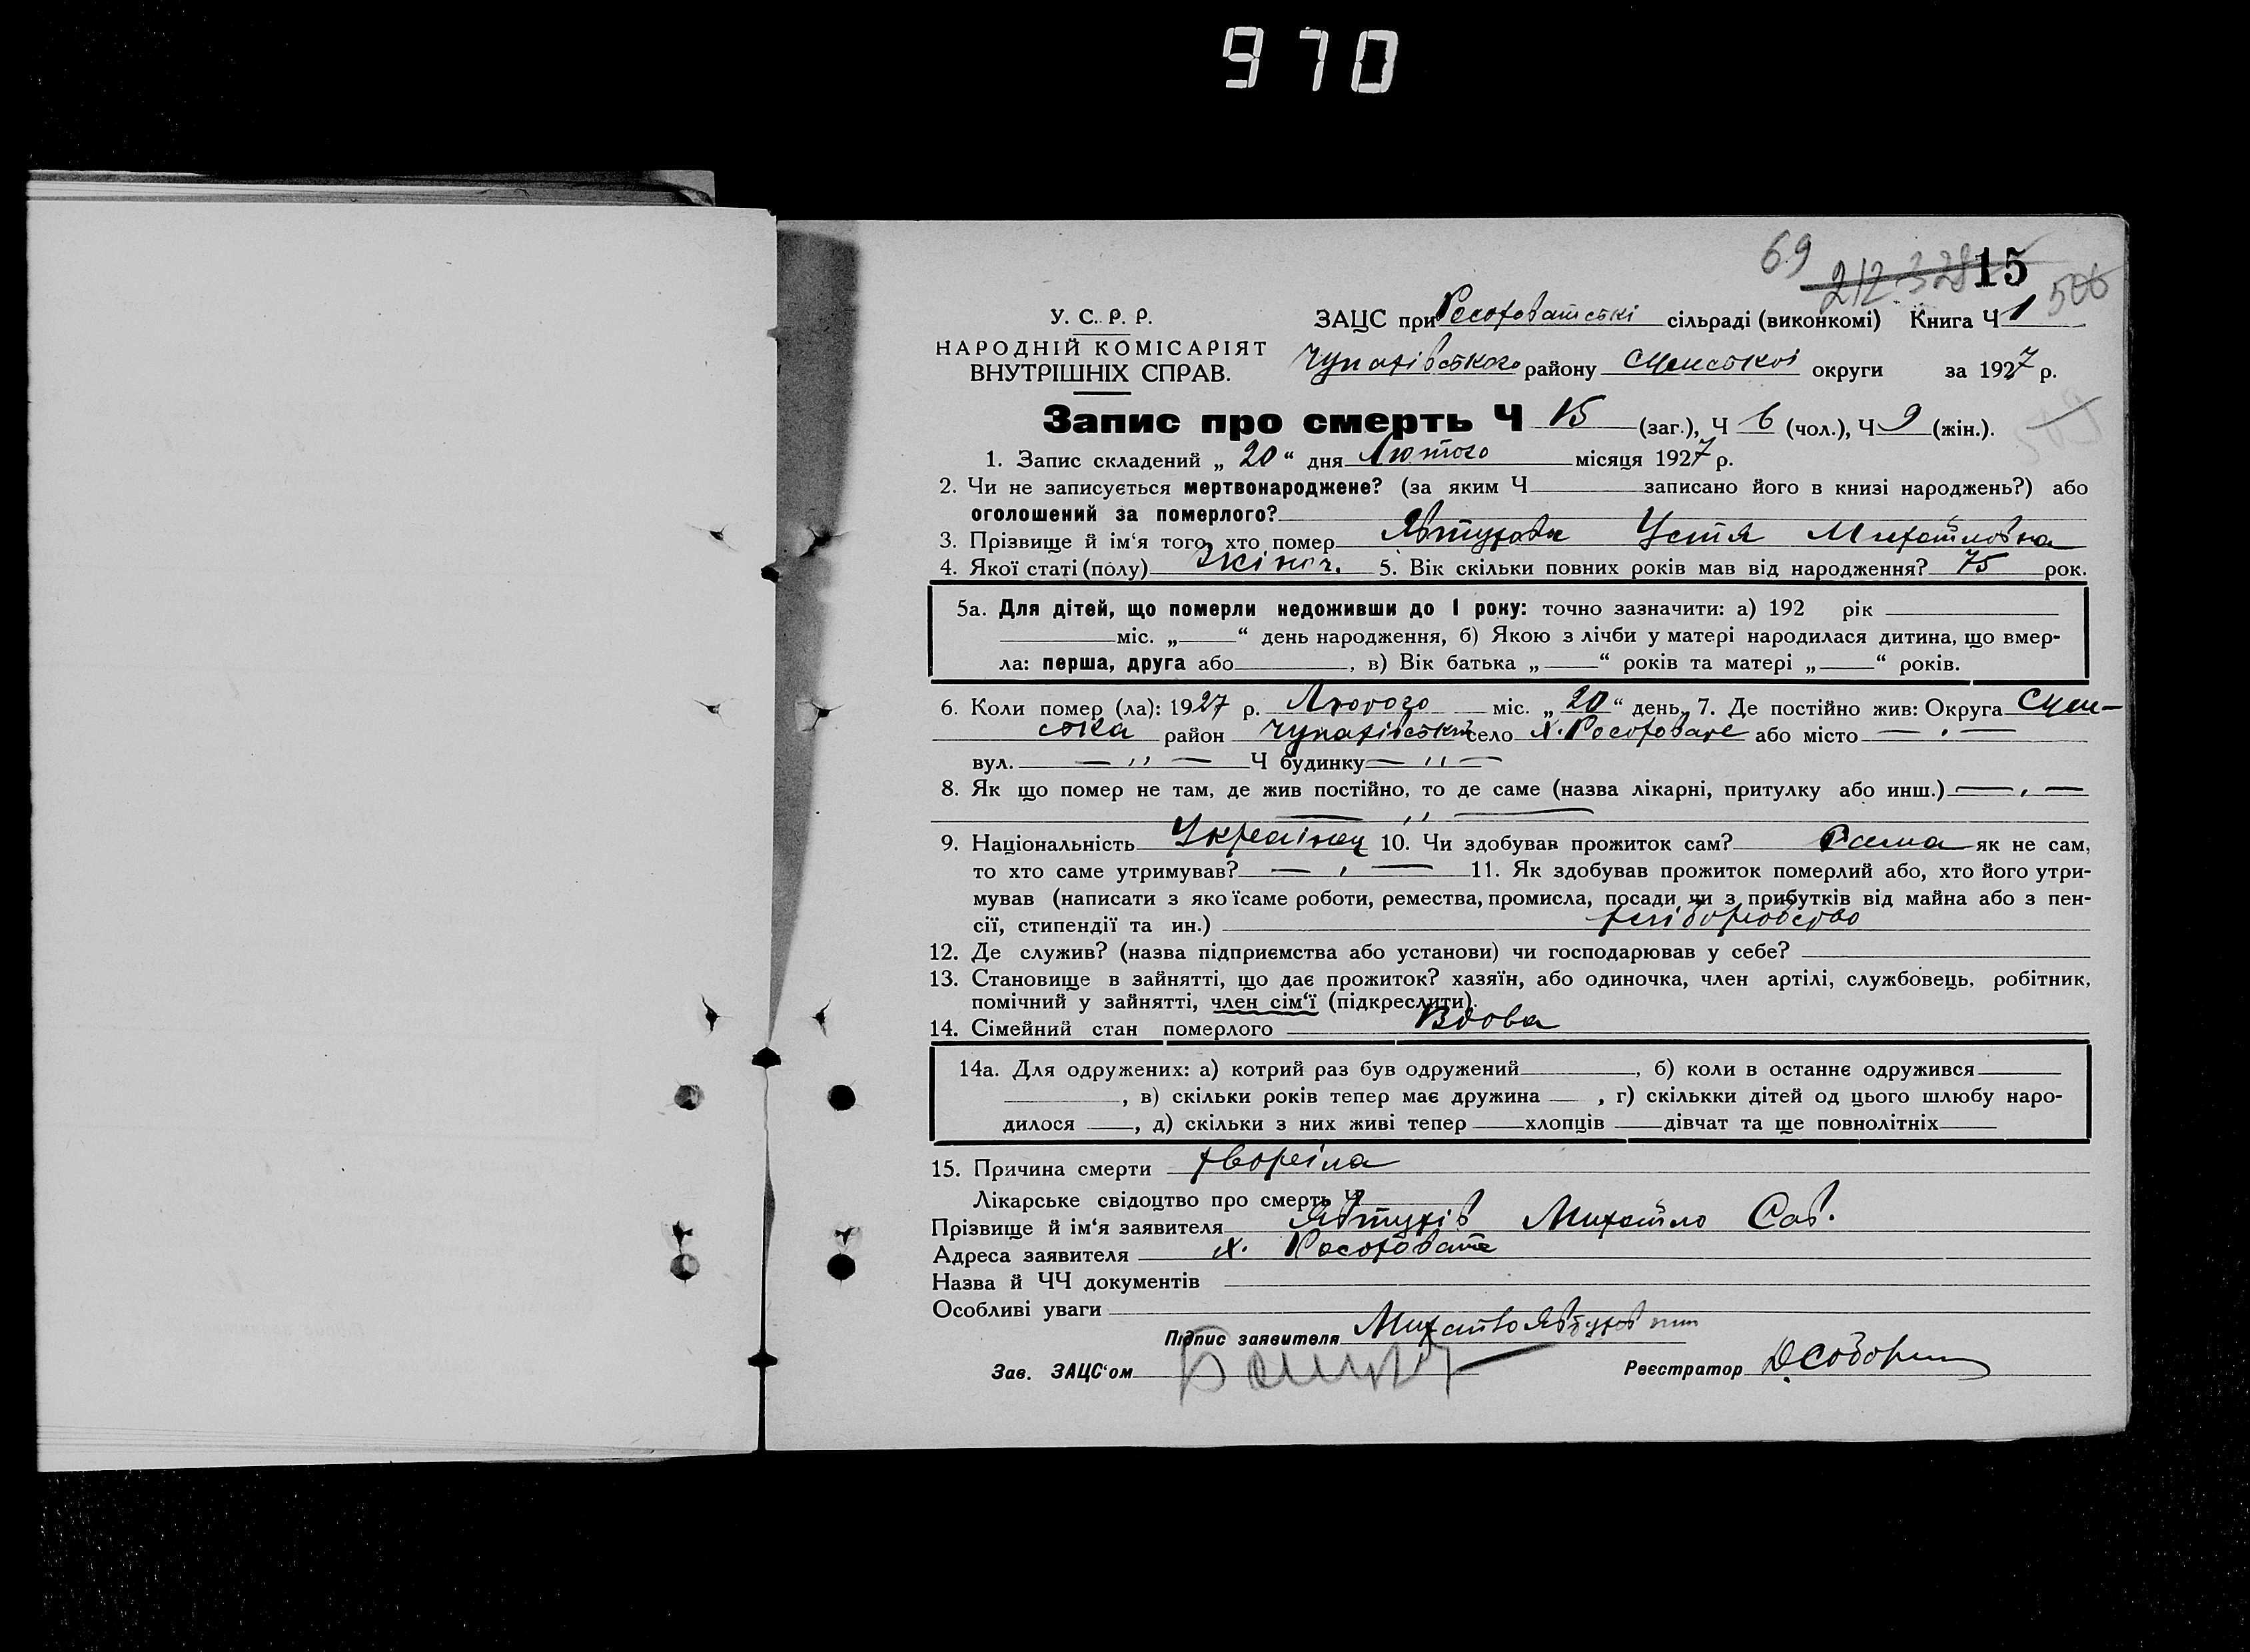 970
69
212 328 15 506
У. С. Р. Р.
ЗАЦС при Росоховатській сільраді (виконкомі) Книга Ч 1
НАРОДНІЙ КОМІСАРІЯТ
ВНУТРІШНІХ СПРАВ.
Чупахівського району Сумської округи за 1927 р.
Запис про смерть Ч 15 (заг.), Ч 6 (чол.), Ч 9 (жін.).
1. Запис складений „ 20 “ дня Лютого місяця 1927 р.
2. Чи не записується мертвонароджене? (за яким Ч записано його в книзі народжень?) або
оголошений за померлого?
3. Прізвище й ім‘я того, хто помер Явтухова Устя Михайловна
4. Якої статі (полу) Жіноч. 5. Вік скільки повних років мав від народження? 75 рок.
5а. Для дітей, що померли недоживши до 1 року: точно зазначити: а) 192 рік
міс. „ “ день народження, б) Якою з лічби у матері народилася дитина, що вмер-
ла: перша, друга або , в) Вік батька „ “ років та матері „ “ років.
6. Коли помер (ла): 1927 р. Лютого міс. „ 20 “ день, 7. Де постійно жив: Округа Сум-
ська район Чупахівський село х. Росоховате або місто — . —
вул. — ,, — Ч будинку — ,, —
8. Як що помер не там, де жив постійно, то де саме (назва лікарні, притулку або инш.) — , —
— ,, —
9. Національність Україінец 10. Чи здобував прожиток сам? Сама як не сам,
то хто саме утримував? — , — 11. Як здобував прожиток померлий або, хто його утри-
мував (написати з якоїсаме роботи, ремества, промисла, посади чи з прибутків від майна або з пен-
сії, стипендії та ин.) хліборобство
12. Де служив? (назва підприємства або установи) чи господарював у себе?
13. Становище в зайнятті, що дає прожиток? хазяїн, або одиночка, член артілі, службовець, робітник,
помічний у зайнятті, член сім‘ї (підкреслити).
14. Сімейний стан померлого Вдова
14а. Для одружених: а) котрий раз був одружений , б) коли в останнє одружився
, в) скільки років тепер має дружина , г) скількки дітей од цього шлюбу наро-
дилося , д) скільки з них живі тепер хлопців дівчат та ще повнолітніх
15. Причина смерти
Лікарське свідоцтво про смерть Ч
Прізвище й ім‘я заявителя Явтухів Михайло Сав.
Адреса заявителя х. Росоховате
Назва й ЧЧ документів
Особливі уваги
Підпис заявителя Михайло Явтухов
Зав. ЗАЦС‘ом Реєстратор